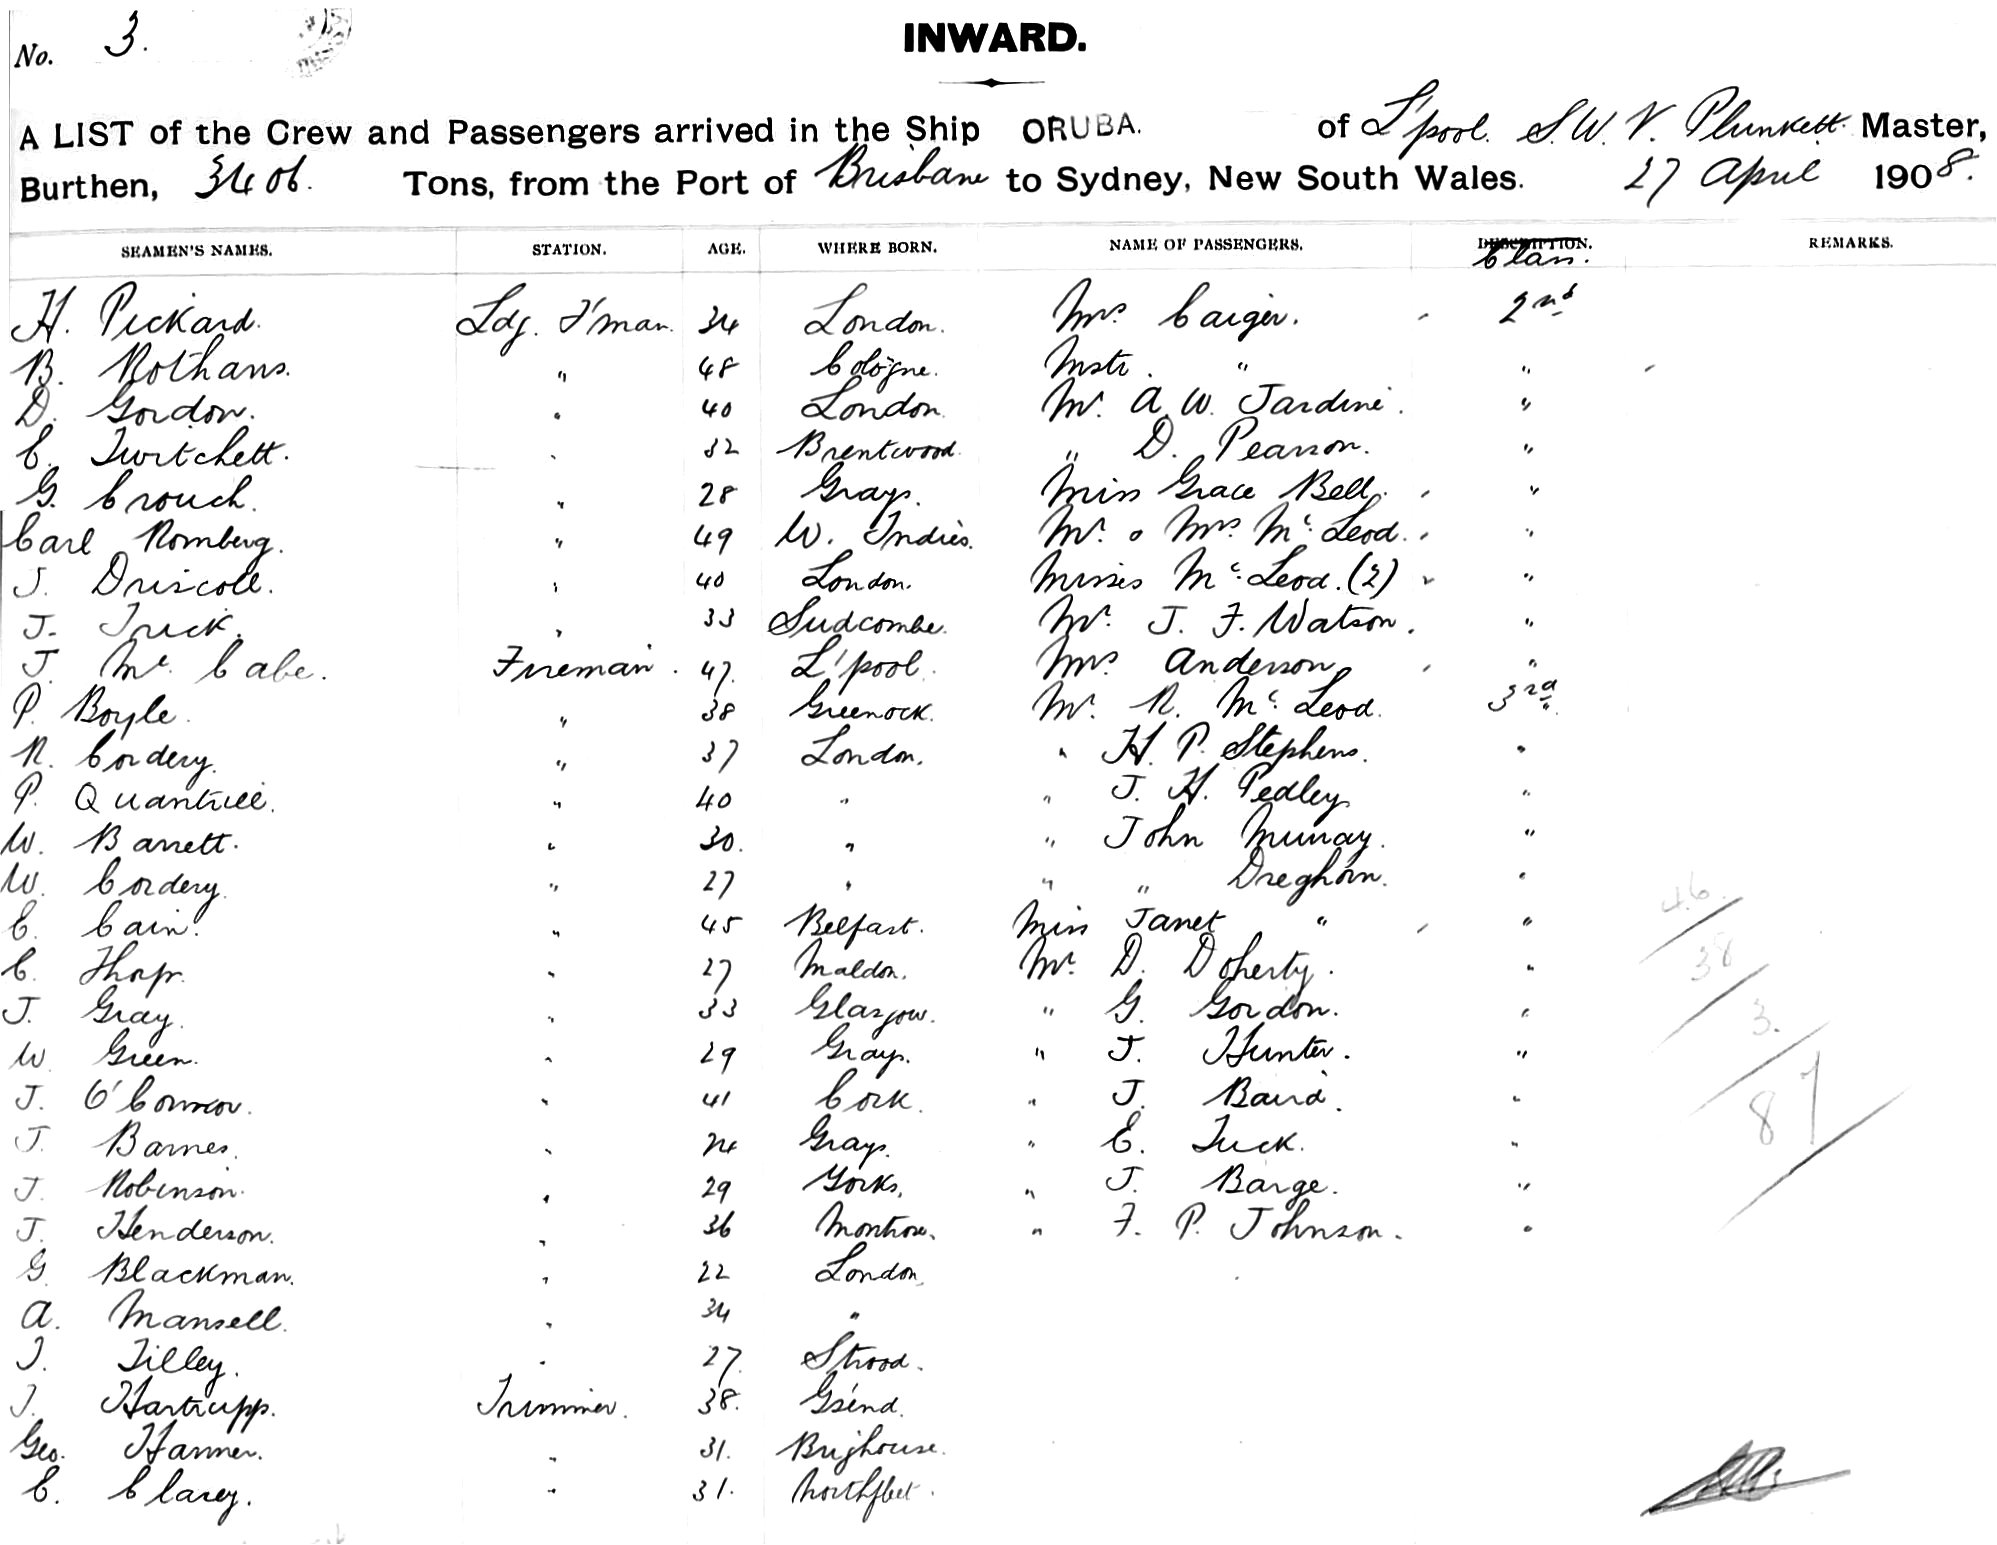 No. 3.
INWARD.
A LIST of the Crew and Passengers arrived in the Ship ORUBA. of L'pool. S. W. V. Plunkett. Master,
Burthen, 3406. Tons, from the Port of Brisbane to Sydney, New South Wales. 27 April 1908.
SEAMEN'S NAMES. STATION. AGE. WHERE BORN. NAME OF PASSENGERS. DESCRIPTION. REMARKS.
Class.
H. Pickard. Ldg. F'man. 34 London. Mrs Caiger. 2nd
B. Rothans. " 48 Cologne. Mstr. " "
D. Gordon. " 40 London. Mr. A. W. Jardine. "
C. Twitchett. " 32 Brentwood. " D. Pearson. "
G. Crouch. " 28 Grays. Miss Grace Bell. "
Carl Romberg. " 49 W. Indies. Mr. & Mrs McLeod. "
J. Driscoll. " 40 London. Misses McLeod. (2) "
J. Truck. " 33 Sudcombe. Mr. J. F. Watson. "
J. McCabe. Fireman. 47. L'pool. Mrs Anderson "
P. Boyle. " 38 Greenock. Mr. R. McLeod. 3rd
R. Cordery. " 37 London. " H. P. Stephens. "
P. Quantrill. " 40 " " J. H. Pedley "
W. Barrett. " 30. " " John Murray. "
W. Cordery. " 27 " " " Dreghorn. "
E. Cain. " 45 Belfast. Miss Janet " "
C. Thorp. " 27 Maldon. Mr. D. Doherty. "
J. Gray. " 33 Glasgow. " G. Gordon. "
W. Green. " 29 Grays. " J. Hunter. "
J. O'Connor. " 41 Cork. " J. Baird. "
J. Barnes. " 24 Grays. " E. Tuck. "
J. Robinson. " 29 Yorks. " J. Barge. "
J. Henderson. " 36 Montrose. " F. P. Johnson. "
G. Blackman. " 22 London.
A. Mansell. " 34 "
J. Tilley. " 27. Strood.
J. Hartrupp. Trimmer. 38. G'send.
Geo. Hanmer. " 31. Brighouse.
E. Clarey. " 31. Northfleet.
46
38
3.
87